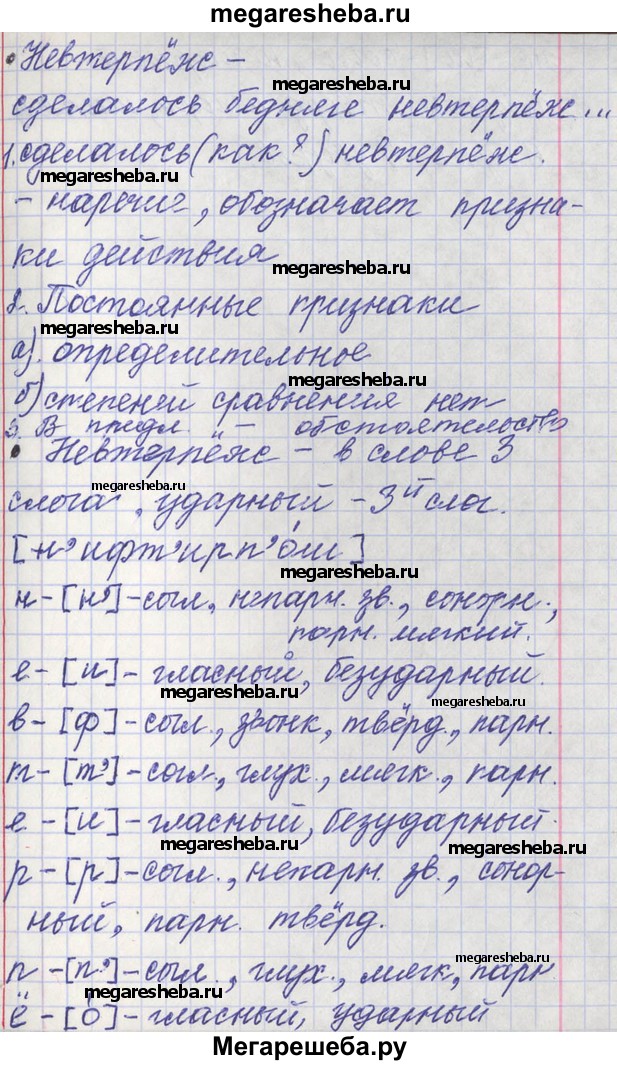 megaresheba.ru
• Невтерпёж –
megaresheba.ru
сделалось бедняге невтерпёж ...
1. сделалось (как?) невтерпёж.
megaresheba.ru
megaresheba.ru
– наречие, обозначает призна-
ки действия
megaresheba.ru
2. Постоянные признаки
megaresheba.ru
а). определительное
megaresheba.ru
б) степеней сравнения нет
3. В предл. – обстоятельство
• Невтерпёж – в слове 3
megaresheba.ru
слога, ударный – 3ий слог.
megaresheba.ru
[н’ифт’ирп’о́ш]
megaresheba.ru
н – [н’] – согл., непарн. зв., сонорн.,
парн. мягкий.
е – [и] – гласный, безударный.
megaresheba.ru
megaresheba.ru
в – [ф] – согл., звонк, твёрд., парн.
т – [т’] – согл., глух., мягк., парн.
megaresheba.ru
е – [и] – гласный, безударный.
megaresheba.ru
megaresheba.ru
р – [р] – согл., непарн. зв., сонор-
ный, парн. твёрд.
megaresheba.ru
п – [п’] – согл., глух., мягк, парн
megaresheba.ru
ё – [о́] – гласный, ударный
Мегарешеба.ру